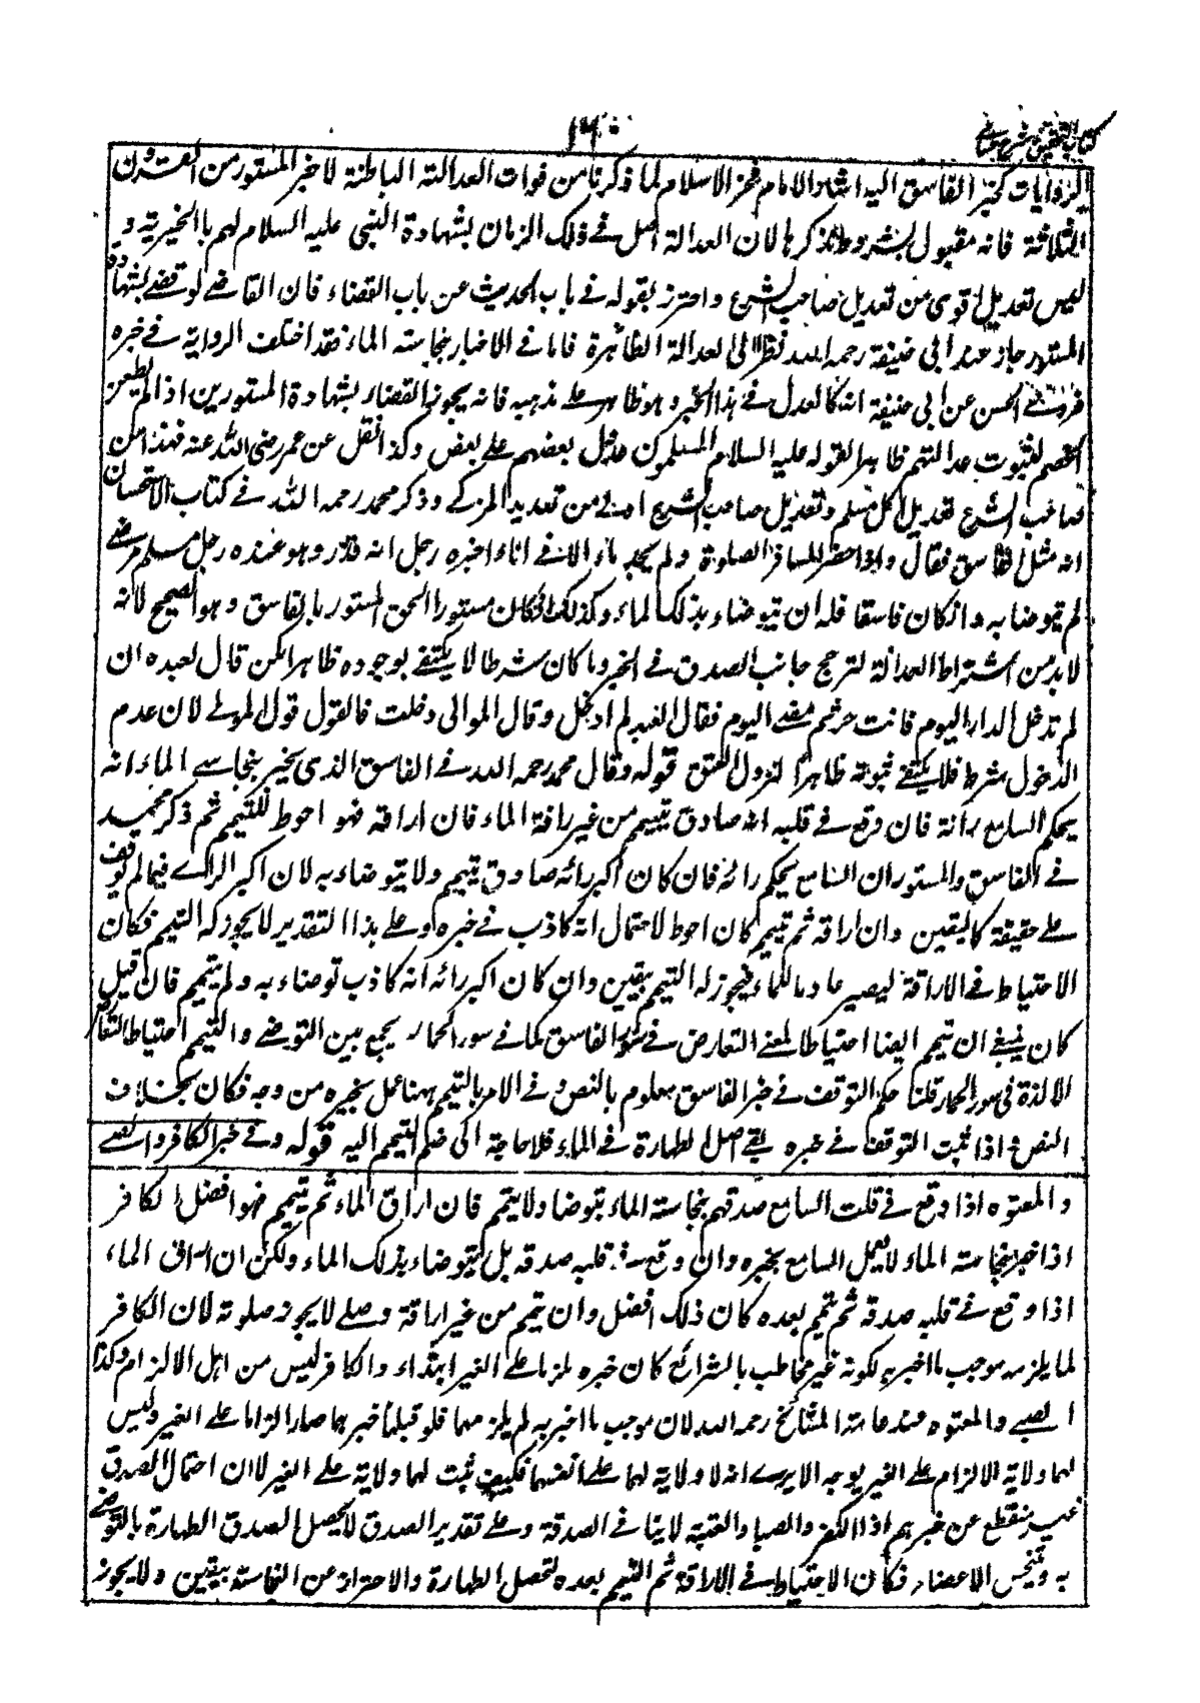 كتاب التحقيق شرح حسامي
١٦٠
الروايات كخبر الفاسق اليه اشار الامام فخر الاسلام لما ذكرنا من فوات العدالة الباطنة لا خبر المستور من القرون
الثلاثة فانه مقبول بشروط نذكرها لان العدالة اصل في ذلك الزمان بشهادة النبي عليه السلام لهم بالخيرية و
ليس تعديل اقوى من تعديل صاحب الشرع واحترز بقوله في باب الحديث عن باب القضاء فان القاضي لو قضى بشهادة
المستور جاز عند ابي حنيفة رحمه الله نظرا الى العدالة الظاهرة فاما في الاخبار بنجاسة الماء فقد اختلف الرواية في خبره
فروى الحسن عن ابي حنيفة انه كالعدل في هذا الخبر وهو ظاهر على مذهبه فانه يجوز القضاء بشهادة المستورين اذا لم يطعن
الخصم لثبوت عدالتهم ظاهرا لقوله عليه السلام المسلمون عدول بعضهم على بعض وكذا نقل عن عمر رضى الله عنه فهذا من
صاحب الشرع تعديل لكل مسلم وتعديل صاحب الشرع اولى من تعديل المزكى وذكر محمد رحمه الله في كتاب الاستحسان
انه مثل الفاسق فقال واذا حضر المسافر الصلوة ولم يجد ماء الا في اناء اخبره رجل انه قذر وهو عنده رجل مسلم مرضى
لم يتوضا به وان كان فاسقا فله ان يتوضاء بذلك الماء وكذلك ان كان مستورا الحق المستور بالفاسق وهو الصحيح لانه
لابد من اشتراط العدالة لترجح جانب الصدق في الخبر وما كان شرطا لا يكتفى بوجوده ظاهرا كمن قال لعبده ان
لم تدخل الدار اليوم فانت حر ثم مضى اليوم فقال العبد لم ادخل وقال المولى دخلت فالقول قول المولى لان عدم
الدخول شرط فلا يكتفى ثبوته ظاهرا لنزول العتق قوله وقال محمد رحمه الله في الفاسق الذى يخبر بنجاسة الماء انه
يحكم السامع رائه فان وقع في قلبه انه صادق يتيمم من غير اراقة الماء فان اراقه فهو احوط للتيمم ثم ذكر محمد
في الفاسق والمستور ان السامع يحكم رائه فان كان اكبر رائه صادق يتيمم ولا يتوضاء به لان اكبر الراى فيما لم يوقف
على حقيقة كاليقين وان اراقه ثم تيمم كان احوط لاحتمال انه كاذب في خبره وعلى هذا التقدير لا يجوز له التيمم فكان
الاحتياط في الاراقة ليصير عادما للماء فيجوز له التيمم بيقين وان كان اكبر رائه انه كاذب توضاء به ولم يتيمم فان قيل
كان ينبغي ان تيمم ايضا احتياطا لمعنى التعارض في خبر الفاسق كما في سور الحمار يجمع بين التوضى والتيمم احتياطا لتعارض
الادلة في سور الحمار قلنا حكم التوقف في خبر الفاسق معلوم بالنص وفي الامر بالتيمم ههنا عمل بخبره من وجه فكان بخلاف
النص فاذا ثبت التوقف في خبره بقى اصل الطهارة في الماء فلا حاجة الى ضم التيمم اليه قوله وفي خبر الكافر والصبى
والمعتوه اذا وقع في قلب السامع صدقهم بنجاسة الماء يتوضا ولا يتيمم فان اراق الماء ثم تيمم فهو افضل الكافر
اذا اخبر بنجاسة الماء لا يعمل السامع بخبره وان وقع في قلبه صدقه بل يتوضاء بذلك الماء ولكن ان اراق الماء
اذا وقع في قلبه صدقه ثم تيمم بعده كان ذلك افضل وان تيمم من غير اراقة وصلى لا يجوز صلوته لان الكافر
لما يلزمه موجب ما اخبر به لكونه غير مخاطب بالشرائع كان خبره ملزما على الغير ابتداء والكافر ليس من اهل الالزام وكذا
الصبى والمعتوه عند عامة المشائخ رحمه الله لان موجب ما اخبر به لم يلزمهما فلو قبل خبرهما صار الزاما على الغير وليس
لهما ولاية الالزام على الغير بوجه الا يرى انه لا ولاية لهما على انفسهما فكيف ثبت لهما ولاية على الغير لا ان احتمال الصدق
غير منقطع عن خبرهم اذا الكفر والصبا والعته لا ينافي الصدق وعلى تقدير الصدق لا يحصل الصدق الطهارة بالتوضى
به وتنجس الاعضاء فكان الاحتياط في الاراقة ثم التيمم بعده لتحصل الطهارة والاحتراز عن النجاسة بيقين ولا يجوز